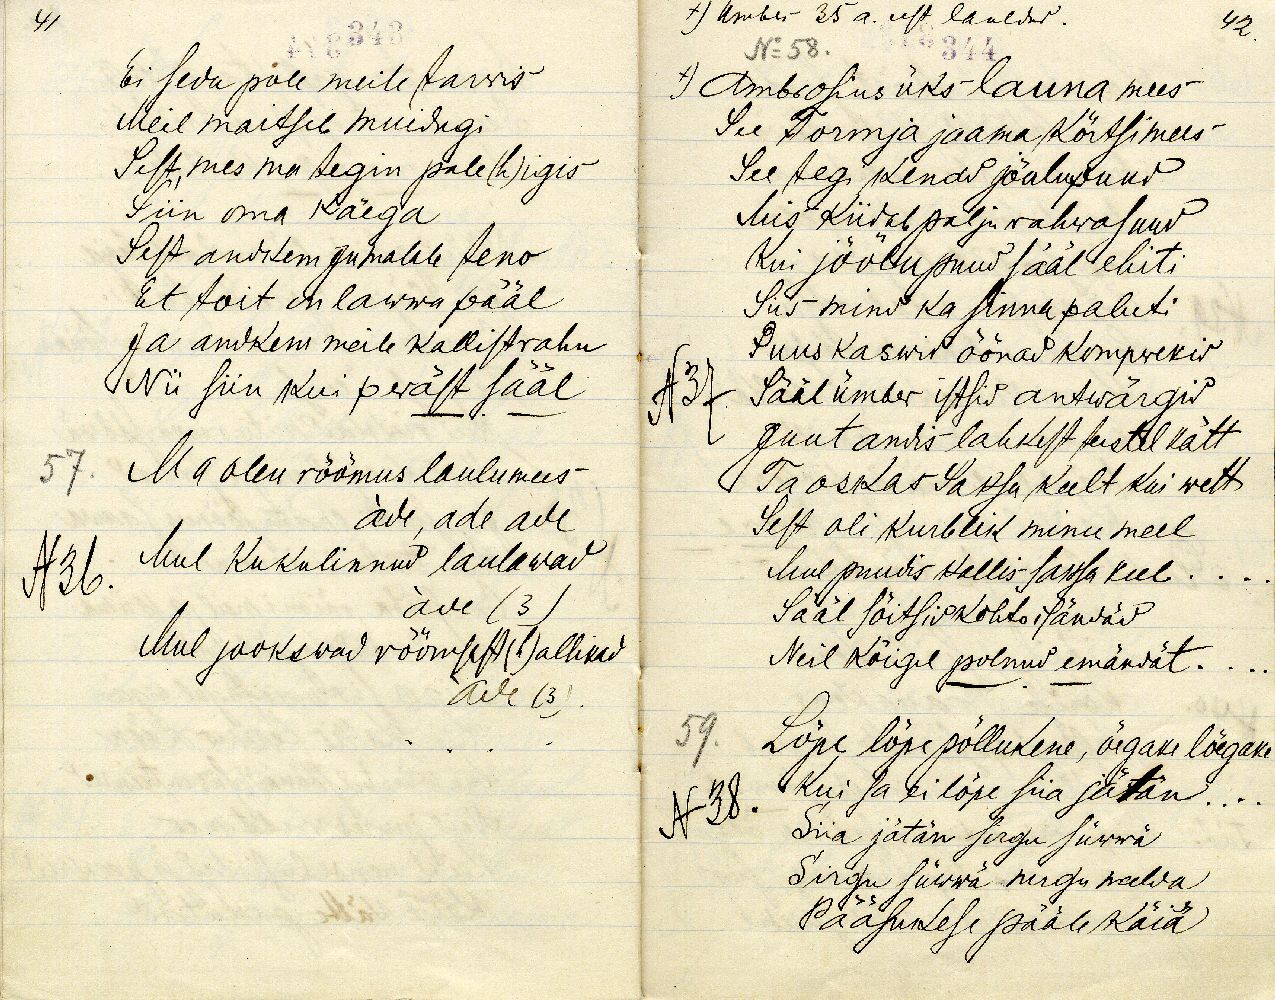 41
343
Ei seda pole meile tarwis
Meil maitseb muidugi
Sest, mes ma tegin pale(h)igis
Siin oma käega
Sest andkem jumalale teno
Et toit on lawwa pääl
Ja andkem meile kallist rahu
Nii siin kui peräst sääl
57. Ma olen röömus laulumees
ade, ade ade
N 36. Mul kukulinnud laulawad
ade (3)
Mul jookswad röömsast (h)allikad
Ade (3).
42.
+) Umber 35 a. eest lauldud.
No 58.
344
+) Ambrosius üks launa mees
See Tormja jaama körtsimees
See tegi kenad jöulupuud
Mis kiidab palju rahwa suud
Kui jöölupuud sääl ehiti
Siis mind ka sinna paluti
Puus kaswid öönad kompwekid
N 37. Sääl ümber istsid antwärgid
Juut andis lahkest teistel kätt
Ta oskas Saksa keelt kui wett
Sest oli kurblik minu meel
Mul puudis kallis saksa keel . . . .
Sääl söitsid kohto isändäd
Neil köigil polnud emändät. . . .
59. Löpe, löpe pöllukene, öegake löegake
N 38. Kui sa ei löpe siia jätän ....
Siia jätän sirgu süwwä
Sirgu süwwä nurgu neelda
Pääsukese pääle käiä